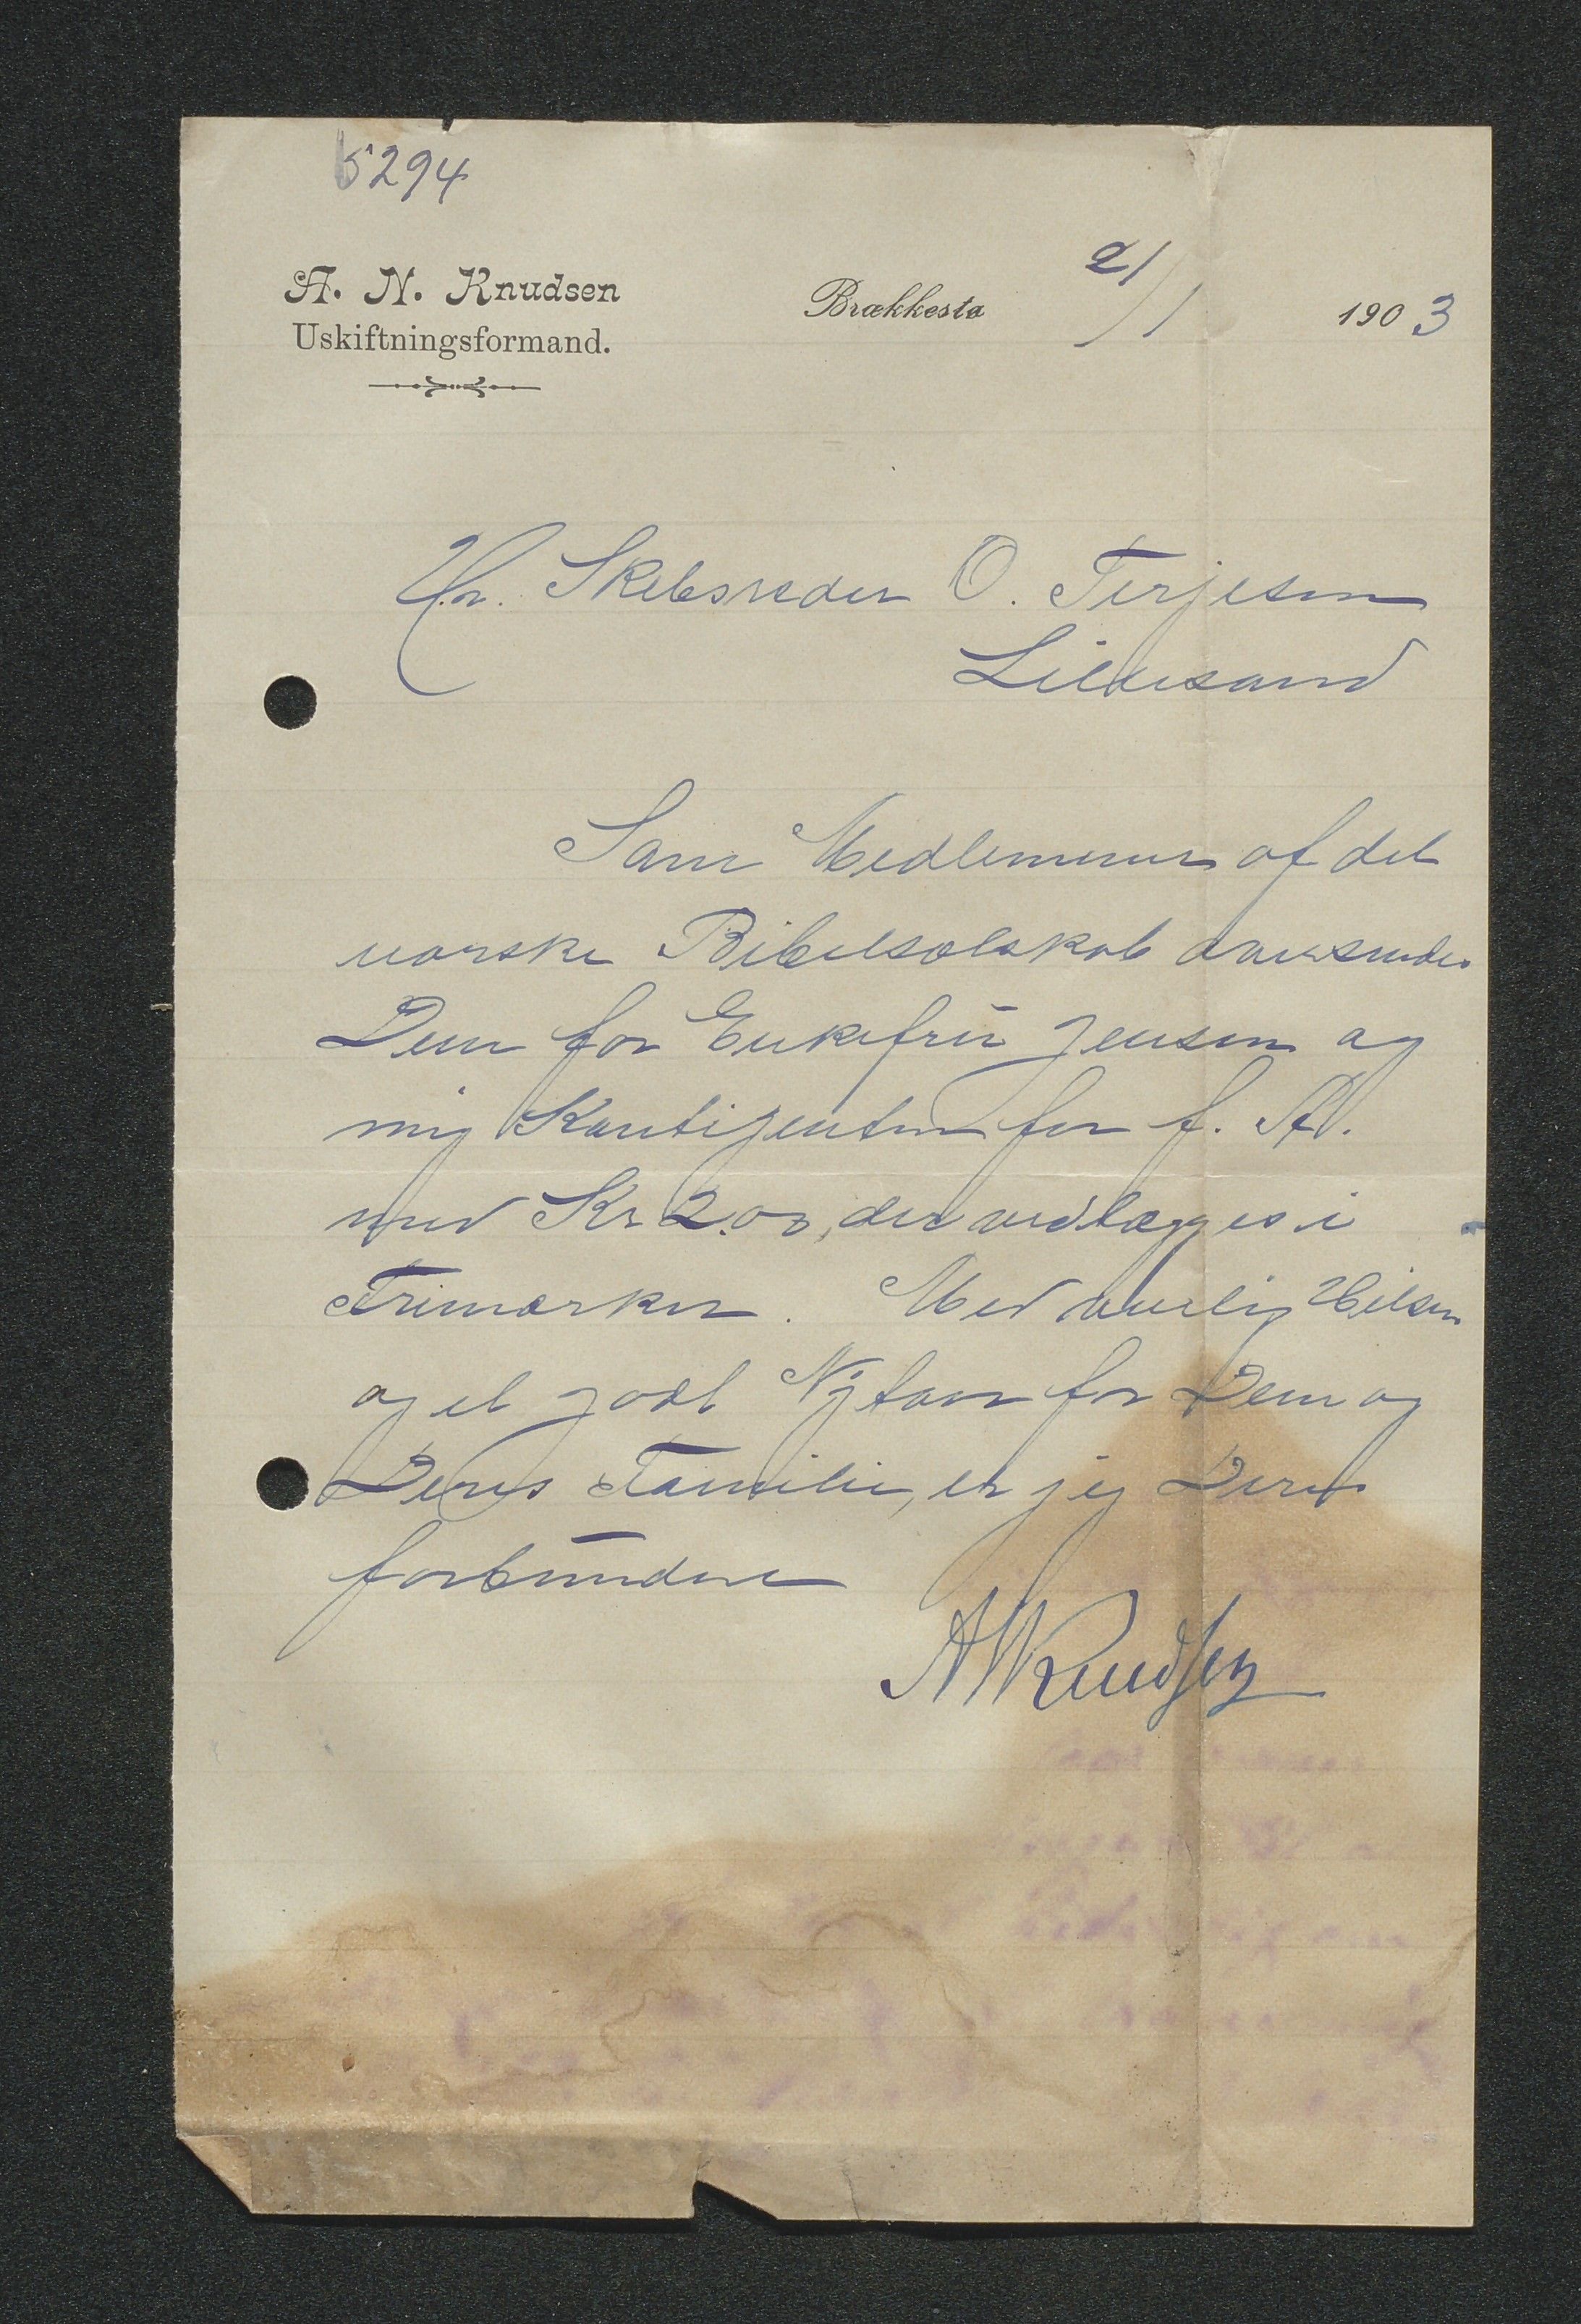 5294
A. N. Knudsen
Uskiftningsformand.
Brækkestø 2/1 1903
Hr. Skibsreder O. Terjesen
Lillesand
Som Medlemmer af det
norske Bibelselskab oversendes
Dem for Enkefru Jensen og
mig Kontigenten for f. A.
med Kr 2.00, der vedlægges i
Frimærker. Med venlig Hilsen
og et godt Nytaar for Dem og
Deres Familie, er jeg Deres
forbundne
ANKnudsen